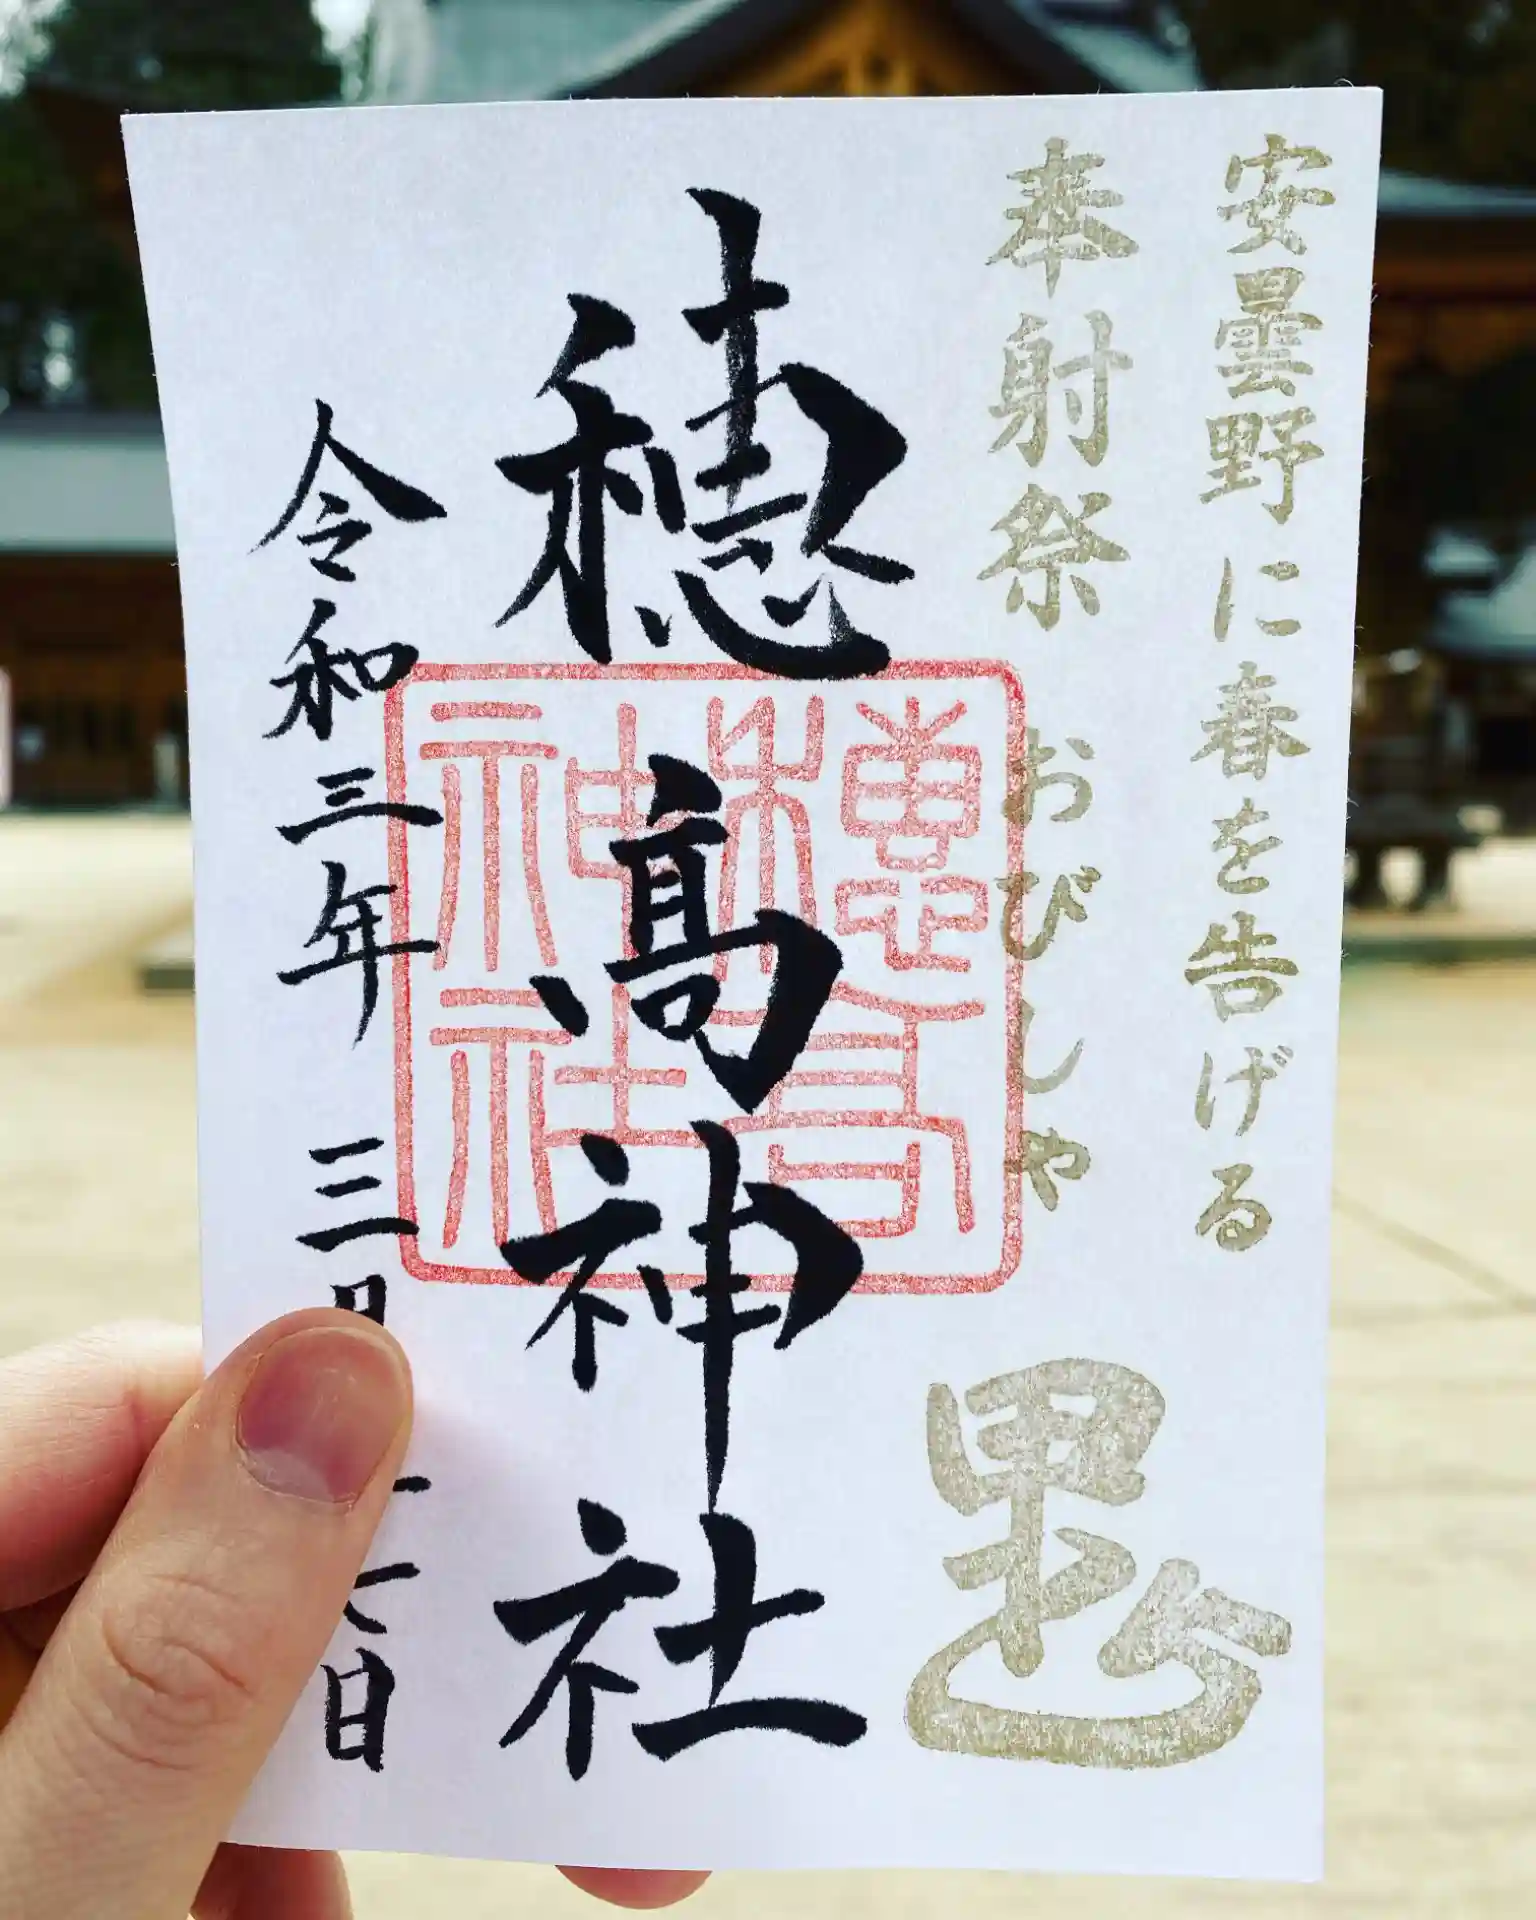 安曇野に春を告げる
奉射祭 おびしや
穂高神社
穂高神社
令和三年 三月 十七日